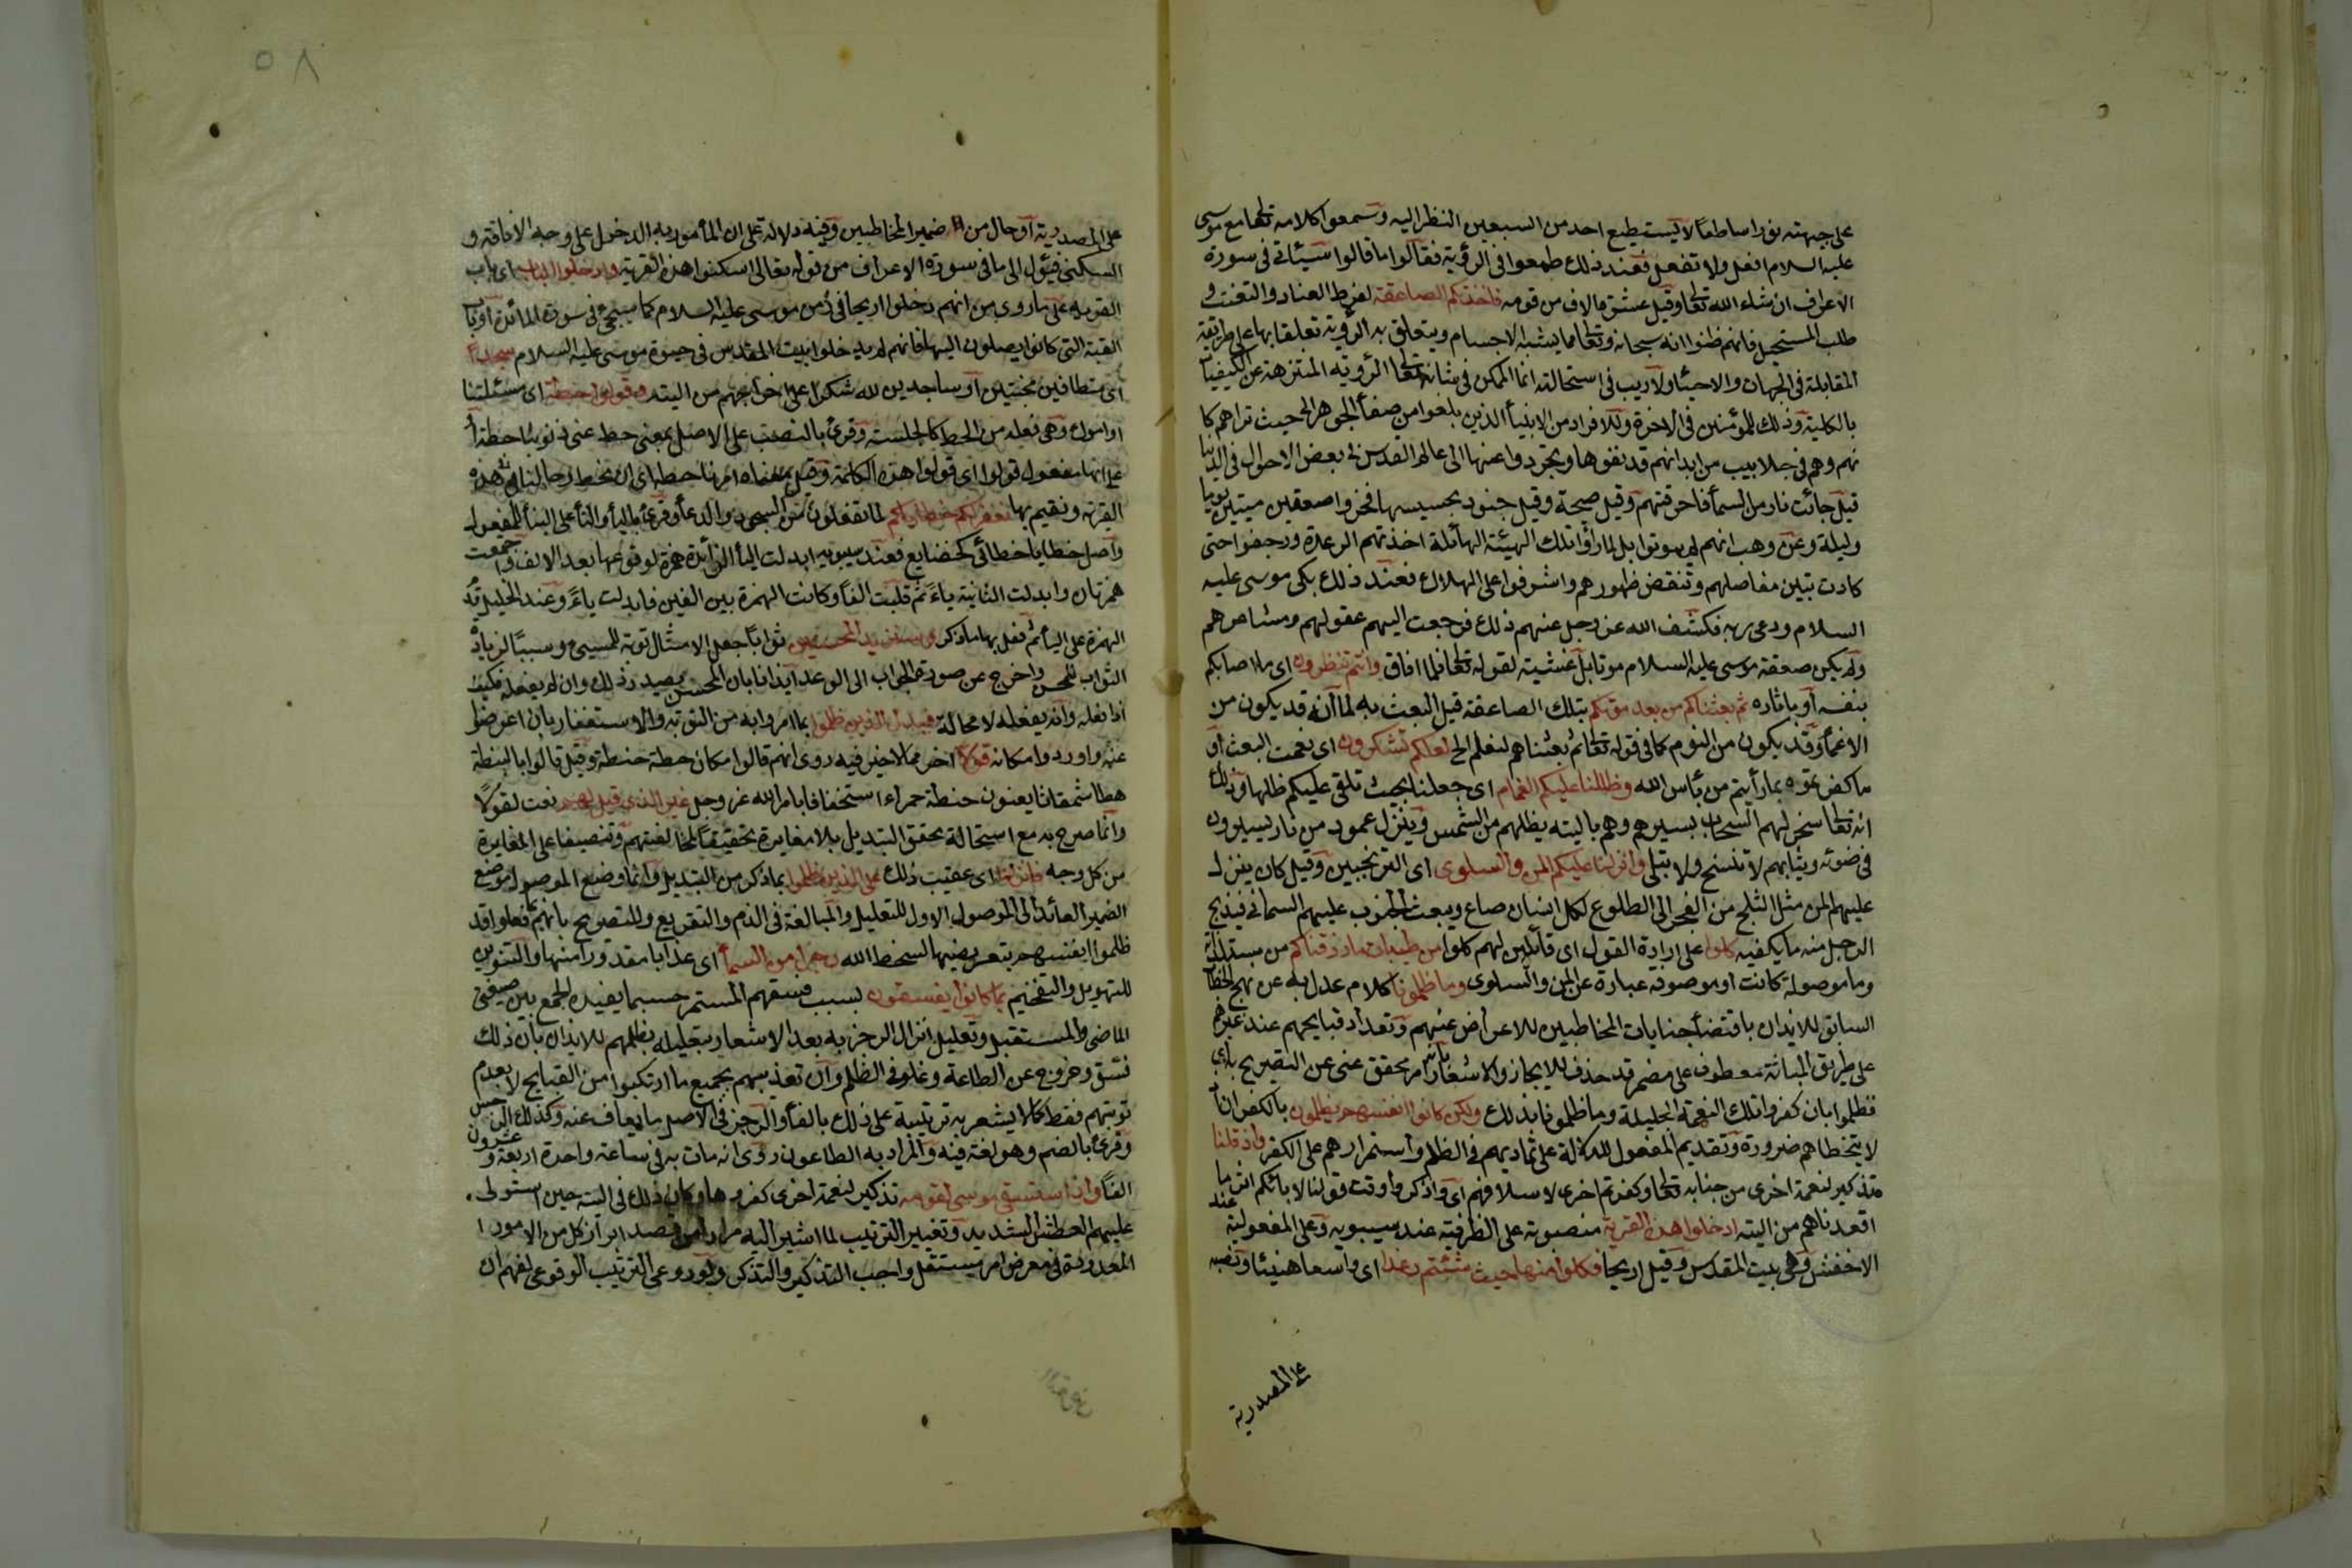 على جبهته نورا ساطعا لا يستطيع احد من السبعين النظر اليه وسمعوا كلامه تعالى مع موسى
عليه السلام افعل ولا تفعل فعند ذلك طمعوا في الرؤية فقالوا ما قالوا سيأتي في سورة
الاعراف ان شاء الله تعالى وقيل عشرة الاف من قومه فاخذتكم الصاعقة لفرط العناد والتعنت و
طلب المستحيل فانهم ظنوا انه سبحانه وتعالى مما يشبه الاجسام ويتعلق به الرؤية تعلقها بها على طريقة
المقابلة في الجهات والاحياز ولا ريب في استحالته انما الممكن في شانه تعالى الرؤية المنزهة عن الكيفيات
بالكلية وذلك للمؤمنين في الاخرة وللافراد من الانبيأ الذين بلغوا من صفأ الجوهر الى حيث تراهم كا
نهم وهم في جلابيب من ابدانهم قد نفوها وتجردوا عنها الى عالم القدس في بعض الاحوال في الدنيا
قيل جائت نار من السمأ فاحرقتهم وقيل صيحة وقيل جنود بحسيسها فخروا صعقين ميتين يوما
وليلة وعن وهب انهم لم يموتوا بل لما رأوا تلك الهيئة الهائلة اخذتهم الرعدة ورجفوا حتى
كادت تبين مفاصلهم وتنقض ظهورهم واشرفوا على الهلاك فعند ذلك بكى موسى عليه
السلام ودعى ربه فكشف الله عز وجل عنهم ذلك فرجعت اليهم عقولهم ومشاعرهم
ولم يكن صعقة موسى عليه السلام موتا بل غشية لقوله تعالى فلما افاق وانتم تنظرون اى ما اصابكم
بنفسه او باثاره ثم بعثناكم من بعد موتكم بتلك الصاعقة قيل البعث به لما انه قد يكون من
الاغمأ وقد يكون من النوم كما في قوله تعالى ثم بعثناهم لنعلم الخ لعلكم تشكرون اى نعمت البعث او
ما كفرتموه بما رأيتم من بأس الله وظللنا عليكم الغمام اى جعلنا بحيث تلقى عليكم ظلها وذلك
انه تعالى سخر لهم السحاب بسيرهم وهم بالتيه يظلهم من الشمس وينزل عمود من نار يسيرون
في ضوئه وثيابهم لا تتسخ ولا تبلى وانزلنا عليكم المن والسلوى اى الترنجبين وقيل كان ينزل
عليهم المن مثل الثلج من الفجر الى الطلوع لكل انسان صاع ويبعث الجنوب عليهم السمانى فيذبح
الرجل منه ما يكفيه كلوا على ارادة القول اى قائلين لهم كلوا من طيبات ما رزقناكم من مستلذاته
وما موصولة كانت او موصوفه عبارة عن المن والسلوى وما ظلمونا كلام عدل به عن نهج الخطاب
السابق للايذان باقتضأ جنايات المخاطبين للاعراض عنهم وتعداد قبايحهم عند غيرهم
على طريق المباثة معطوف على مضمر قد حذف للايجاز والاشعار بانه امر محقق غنى عن التصريح به اى
فظلموا بان كفروا تلك النعمة الجليلة وما ظلمونا بذلك ولكن كانوا انفسهم يظلمون بالكفران اذ
لا يتخطاهم ضرورة وتقديم المفعول للدلالة على تماديهم في الظلم واستمرارهم على الكفر واذ قلنا
تذكير لنعمة اخرى من جنابه تعالى وكفرتم اخرى لاسلافهم اى واذكروا وقت قولنا لابائكم اثر ما
اقعدناهم من التيه ادخلوا هذه القرية منصوبة على الظرفية عند سيبويه وعلى المفعولية عند
الاخفش وهى بيت المقدس وقيل اريحا فكلوا منها حيث شئتم رغدا اى واسعا هنيئا ونصبه
على المصدرية
٥٨
على المصدرية او حال من ضمير المخاطبين وفيه دلالة على ان المأمور به الدخول على وجه الاقامة و
السكنى فيؤل الى ما في سورة الاعراف من قوله تعالى اسكنوا هذه القرية وادخلوا الباب اى باب
القرية على ما روى من انهم دخلوا اريحا في زمن موسى عليه السلام كما سيجئ في سورة المائدة او باب
القبة التى كانوا يصلون اليها فانهم لم يدخلوا بيت المقدس في حيوة موسى عليه السلام سجدا
اى متطامنين مخبتين او ساجدين لله شكرا على اخراجهم من التيه وقولوا حطة اى مسئلتنا
او امرك وهى فعلة من الحط كالجلسة وقرئ بالنصب على الاصل بمعنى حط عنى ذنوبنا حطة او
على انها مفعول قولوا اى قولوا هذه الكلمة وقيل معناه امرنا حطة اى ان نحط رحالنا في هذه
القرية ونقيم بها نغفر لكم خطاياكم لما تفعلون من السجود والدعأ وقرئ باليأ والتأ على البنأ للمفعول
واصل خطايا خطائى كخضايع فعند سيبويه ابدلت اليأ الزائدة همزة لوقوعها بعد الالف واجتمعت
همزتان وابدلت الثانية ياء ثم قلبت الفا وكانت الهمزة بين الفين فابدلت ياء وعند الخليل قد
الهمزة على اليأ ثم فعل بها ما ذكر وسنزيد المحسنين ثوابا جعل الامتثال توبة للمسئ وسببا لزيادة
الثواب للمحسن واخرج عن صورة الجواب الى الوعد ايذانا بان المحسن بصدد ذلك وان لم يفعله فكيف
اذا فعله وانه يفعله لا محالة فبدل الذين ظلموا بما امروا به من التوبة والاستغفار بان اعرضوا
عنه واوردوا مكانه قولا اخر مما لا خير فيه روى انهم قالوا مكان حطة حنطة وقيل قالوا بالنبطية
حطا شمقاثا يعنون حنطة حمراء استخفافا بامر الله عز وجل غير الذى قيل لهم نعت لقولا
وانما صرح به مع استحالة تحقق التبديل بلا مغايرة تحقيقا لمخالفتهم وتنصيصا على المغايرة
من كل وجه فانزلنا اى عقيب ذلك على الذين ظلموا بما ذكر من التبديل وانما وضع الموصول موضع
الضمير العائد الى الموصول الاول للتعليل والمبالغة في الذم والتقريع وللتصريح بانهم بما فعلوا قد
ظلموا انفسهم بتعريضها لسخط الله رجزا من السمأ اى عذابا مقدورا منها والتنوين
للتهويل والتفخيم بما كانوا يفسقون بسبب فسقهم المستمر حسبما يفيده الجمع بين صيغتى
الماضى والمستقبل وتعليل انزال الرجز به بعد الاشعار بتعليله بظلمهم للايذان بان ذلك
فسق وخروج عن الطاعة وغلو في الظلم وان تعذيبهم بجميع ما ارتكبوا من القبايح لا بعدم
توبتهم فقط كما لا يشعر به ترتيبه على ذلك بالفأ والرجز في الاصل ما يعاف عنه وكذلك الرجس
وقرئ بالضم وهو لغة فيه والمراد به الطاعون روى انه مات به في ساعة واحدة اربعة وعشرون
الفا واذ استسقى موسى لقومه تذكير لنعمة اخرى كفروها وكان ذلك في التيه حين استولى
عليهم العطش الشديد وتغيير الترتيب لما اشير اليه مرارا من قصد ابراز كل من الامور ا
المعدودة في معرض امر مستقل واجب التذكير والتذكر ولو روعى الترتيب الوقوعى لفهم ان